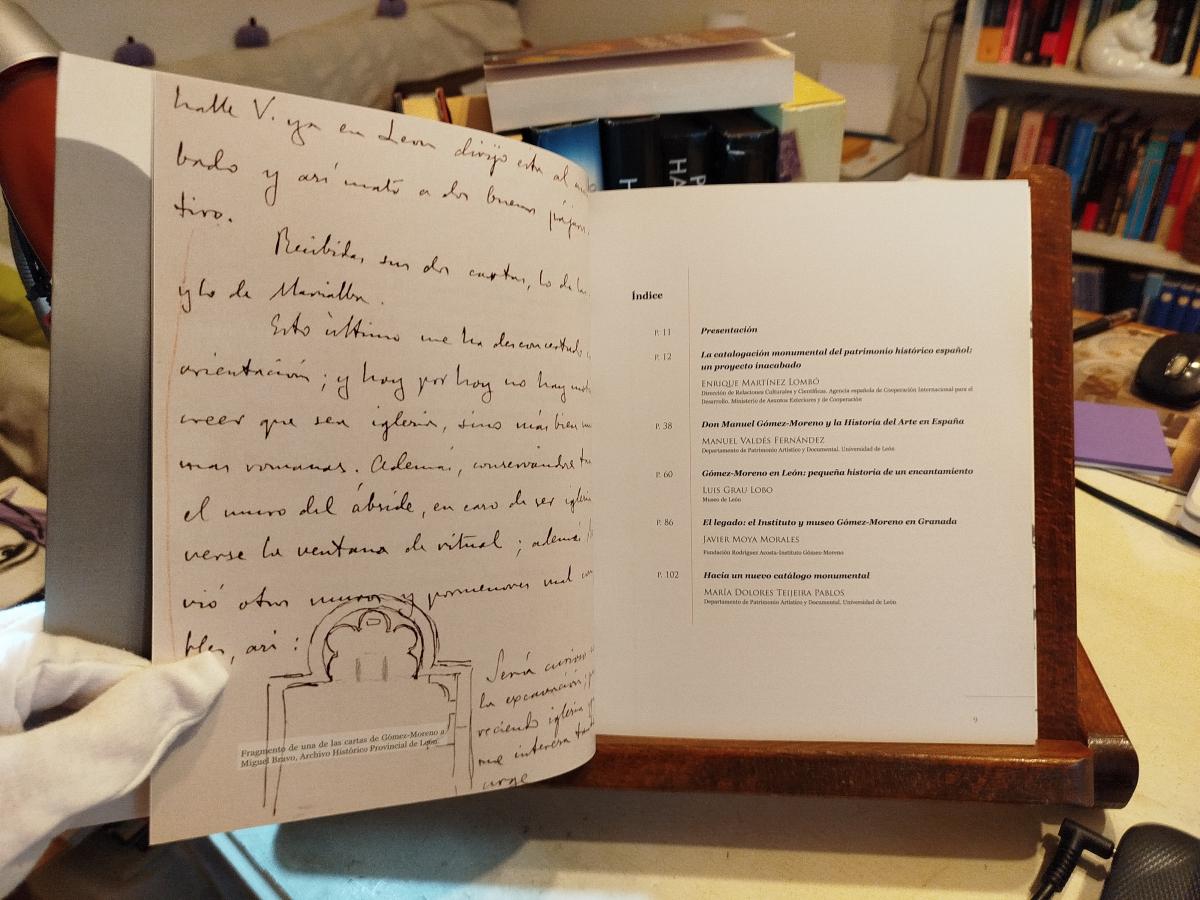 halle V. ya en Leon dirijo esta al
bado y así mato a dos buenos
tiro.
Recibidas sus dos cartas, lo de la
y lo de Marialba.
Esto último me ha desconcertado
orientación; y hoy por hoy no hay
creer que sea iglesia, sino más bien
mas romanas. Además, conservándose
el muro del ábside, en caso de ser iglesia
verse la ventana de ritual; además
vió otros muros y pormenores mal
bles, así:
Sería curioso
la excavación;
reciendo iglesia
me interesa
urge
Fragmento de una de las cartas de Gómez-Moreno a
Miguel Bravo, Archivo Histórico Provincial de León.
Índice
P. 11 Presentación
P. 12 La catalogación monumental del patrimonio histórico español:
un proyecto inacabado
ENRIQUE MARTÍNEZ LOMBÓ
Dirección de Relaciones Culturales y Científicas. Agencia española de Cooperación Internacional para el
Desarrollo. Ministerio de Asuntos Exteriores y de Cooperación
P. 38 Don Manuel Gómez-Moreno y la Historia del Arte en España
MANUEL VALDÉS FERNÁNDEZ
Departamento de Patrimonio Artístico y Documental. Universidad de León
P. 60 Gómez-Moreno en León: pequeña historia de un encantamiento
LUIS GRAU LOBO
Museo de León
P. 86 El legado: el Instituto y museo Gómez-Moreno en Granada
JAVIER MOYA MORALES
Fundación Rodríguez Acosta-Instituto Gómez-Moreno
P. 102 Hacia un nuevo catálogo monumental
MARÍA DOLORES TEIJEIRA PABLOS
Departamento de Patrimonio Artístico y Documental. Universidad de León
9